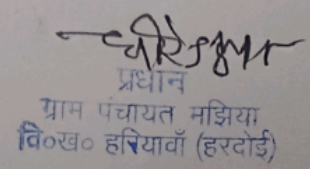 प्रधान
ग्राम पंचायत मझिया
वि०ख० हरियावाँ (हरदोई)